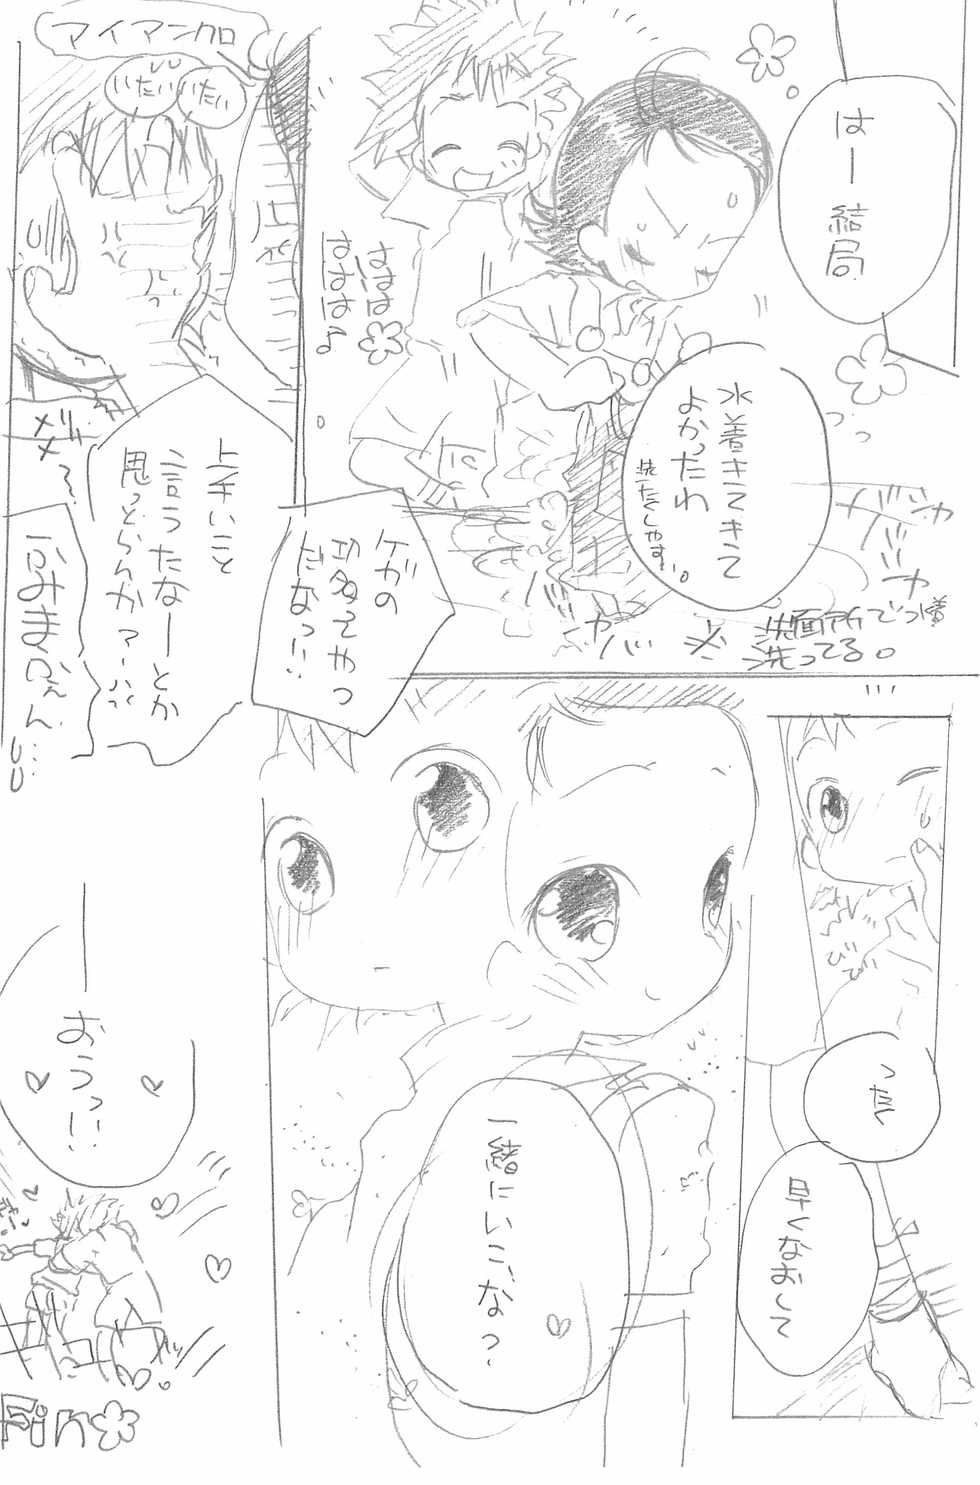 はー結局
水着きてきて
よかったわ
洗たくしやすい。
ジャバ
ジャバ
※洗面所で水着
洗ってる。
はははは
はははは♪
ケガの
功名ってやつ
だなっ!!
マイマンクロ
いたい
いたい
上手いこと
言うたなーとか
思っとらんかァー!?
ふみまふぇん…
ったく
早くなおして
一緒にいこ、な?
おうっ!!
Fin